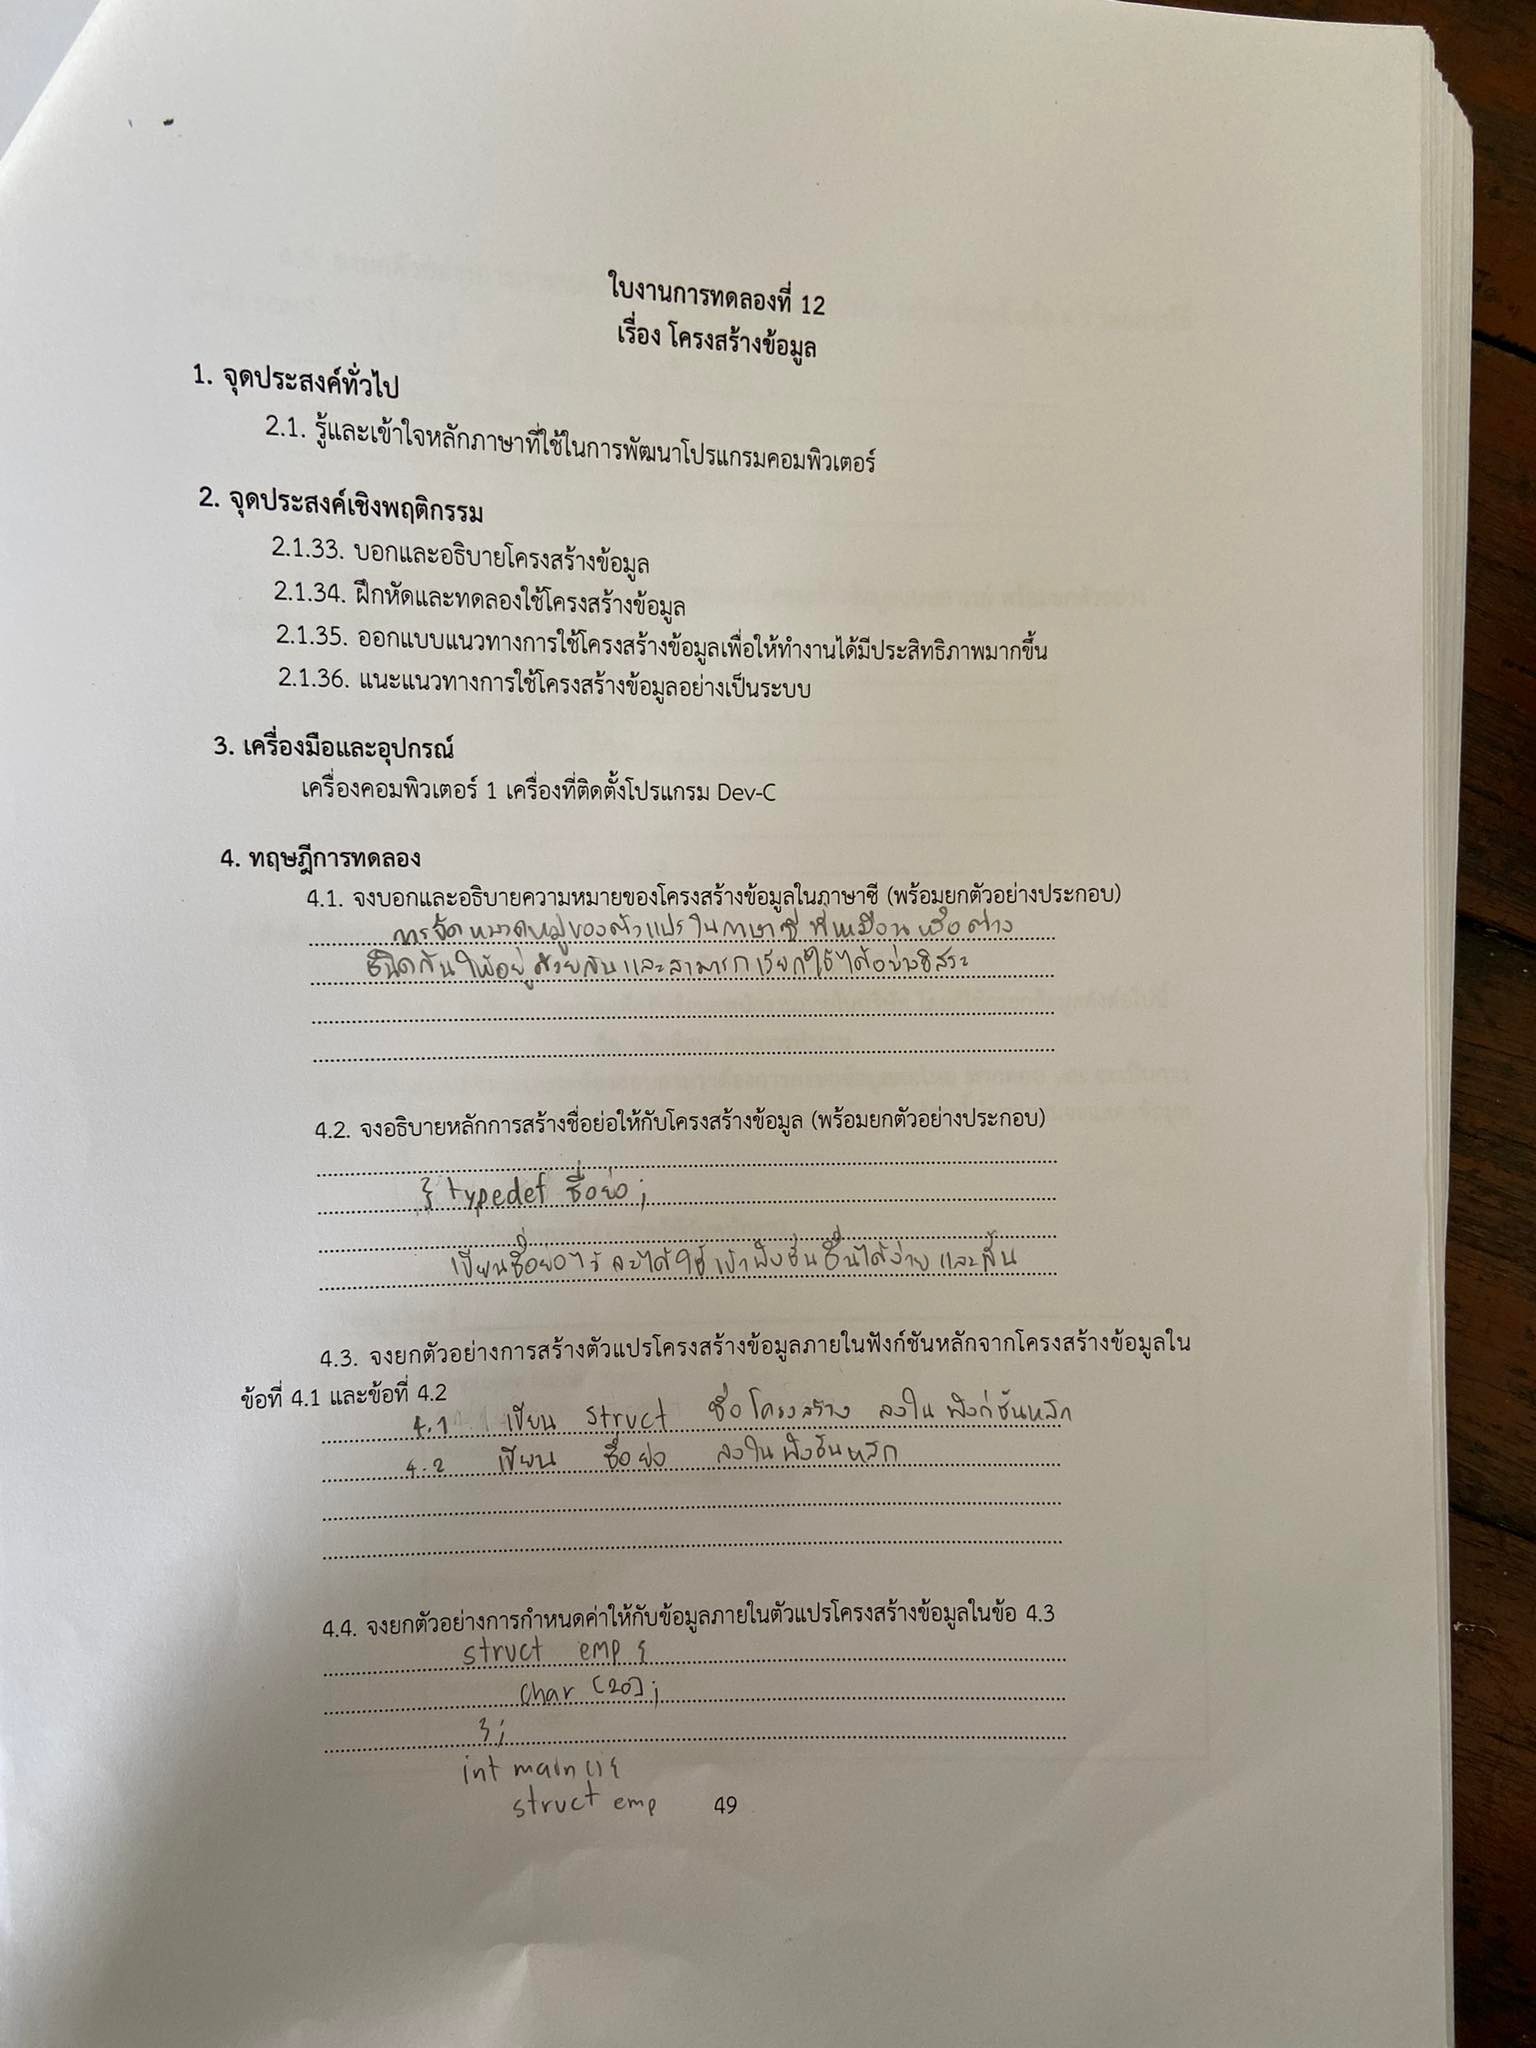 ใบงานการทดลองที่ 12
เรื่อง โครงสร้างข้อมูล
1. จุดประสงค์ทั่วไป
2.1. รู้และเข้าใจหลักภาษาที่ใช้ในการพัฒนาโปรแกรมคอมพิวเตอร์
2. จุดประสงค์เชิงพฤติกรรม
2.1.33. บอกและอธิบายโครงสร้างข้อมูล
2.1.34. ฝึกหัดและทดลองใช้โครงสร้างข้อมูล
2.1.35. ออกแบบแนวทางการใช้โครงสร้างข้อมูลเพื่อให้ทำงานได้มีประสิทธิภาพมากขึ้น
2.1.36. แนะแนวทางการใช้โครงสร้างข้อมูลอย่างเป็นระบบ
3. เครื่องมือและอุปกรณ์
เครื่องคอมพิวเตอร์ 1 เครื่องที่ติดตั้งโปรแกรม Dev-C
4. ทฤษฎีการทดลอง
4.1. จงบอกและอธิบายความหมายของโครงสร้างข้อมูลในภาษาซี (พร้อมยกตัวอย่างประกอบ)
การจัดหมวดหมู่ของตัวแปรในภาษาซี ที่เหมือนหรือต่าง
ชนิดกันให้อยู่ด้วยกันและสามารถเรียกใช้ได้อย่างอิสระ
4.2. จงอธิบายหลักการสร้างชื่อย่อให้กับโครงสร้างข้อมูล (พร้อมยกตัวอย่างประกอบ)
} typedef ชื่อย่อ;
เขียนชื่อย่อไว้ จะได้ใช้ ได้ง่าย และสั้น
4.3. จงยกตัวอย่างการสร้างตัวแปรโครงสร้างข้อมูลภายในฟังก์ชันหลักจากโครงสร้างข้อมูลใน
ข้อที่ 4.1 และข้อที่ 4.2
4.1 เขียน struct ชื่อโครงสร้าง ลงใน ฟังก์ชันหลัก
4.2 เขียน ชื่อย่อ ลงใน ฟังชันหลัก
4.4. จงยกตัวอย่างการกำหนดค่าให้กับข้อมูลภายในตัวแปรโครงสร้างข้อมูลในข้อ 4.3
struct emp {
char [20];
};
int main(){
struct emp
49